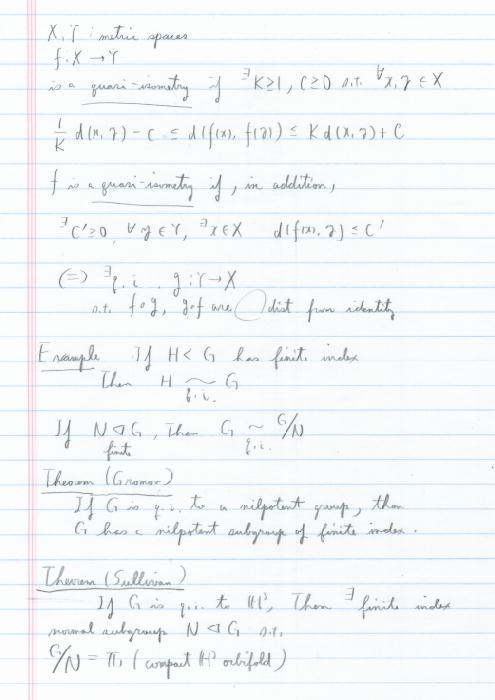 X, Y : metric spaces
f : X → Y
is a quasi-isometry if ∃K≥1, C≥0 s.t. ∀x, y ∈ X
1/K d(x, y) - C ≤ d(f(x), f(y)) ≤ K d(x, y) + C
f is a quasi-isometry if, in addition,
∃C'≥0, ∀y ∈ Y, ∃x ∈ X d(f(x), y) ≤ C'
(=) ∃q.i. g : Y → X
s.t. f∘g, g∘f are dist from identity
Example If H < G has finite index
Then H ~ G
q.i.
If N ◁ G, Then G ~ G/N
finite q.i.
Theorem (Gromov)
If G is q.i. to a nilpotent group, then
G has a nilpotent subgroup of finite index.
Theorem (Sullivan)
If G is q.i. to ℍ³, Then ∃ finite index
normal subgroup N ◁ G s.t.
G/N = π₁ (compact ℍ³ orbifold)